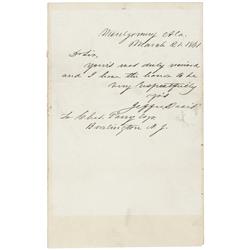 Montgomery Ala.
March 21. 1861
Dr Sir,
Your's rect duly received
and I have the honor to be
Very respectfully
yrs
Jeffn Davis
To Chas. Perry Esq
Burlington N.J.